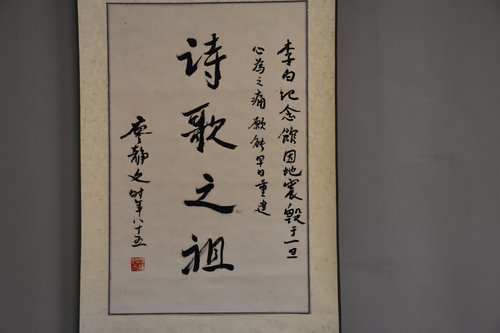 李白纪念馆因地震毁于一旦
心为之痛愿能早日重建
诗歌之祖
廖静文时年八十五